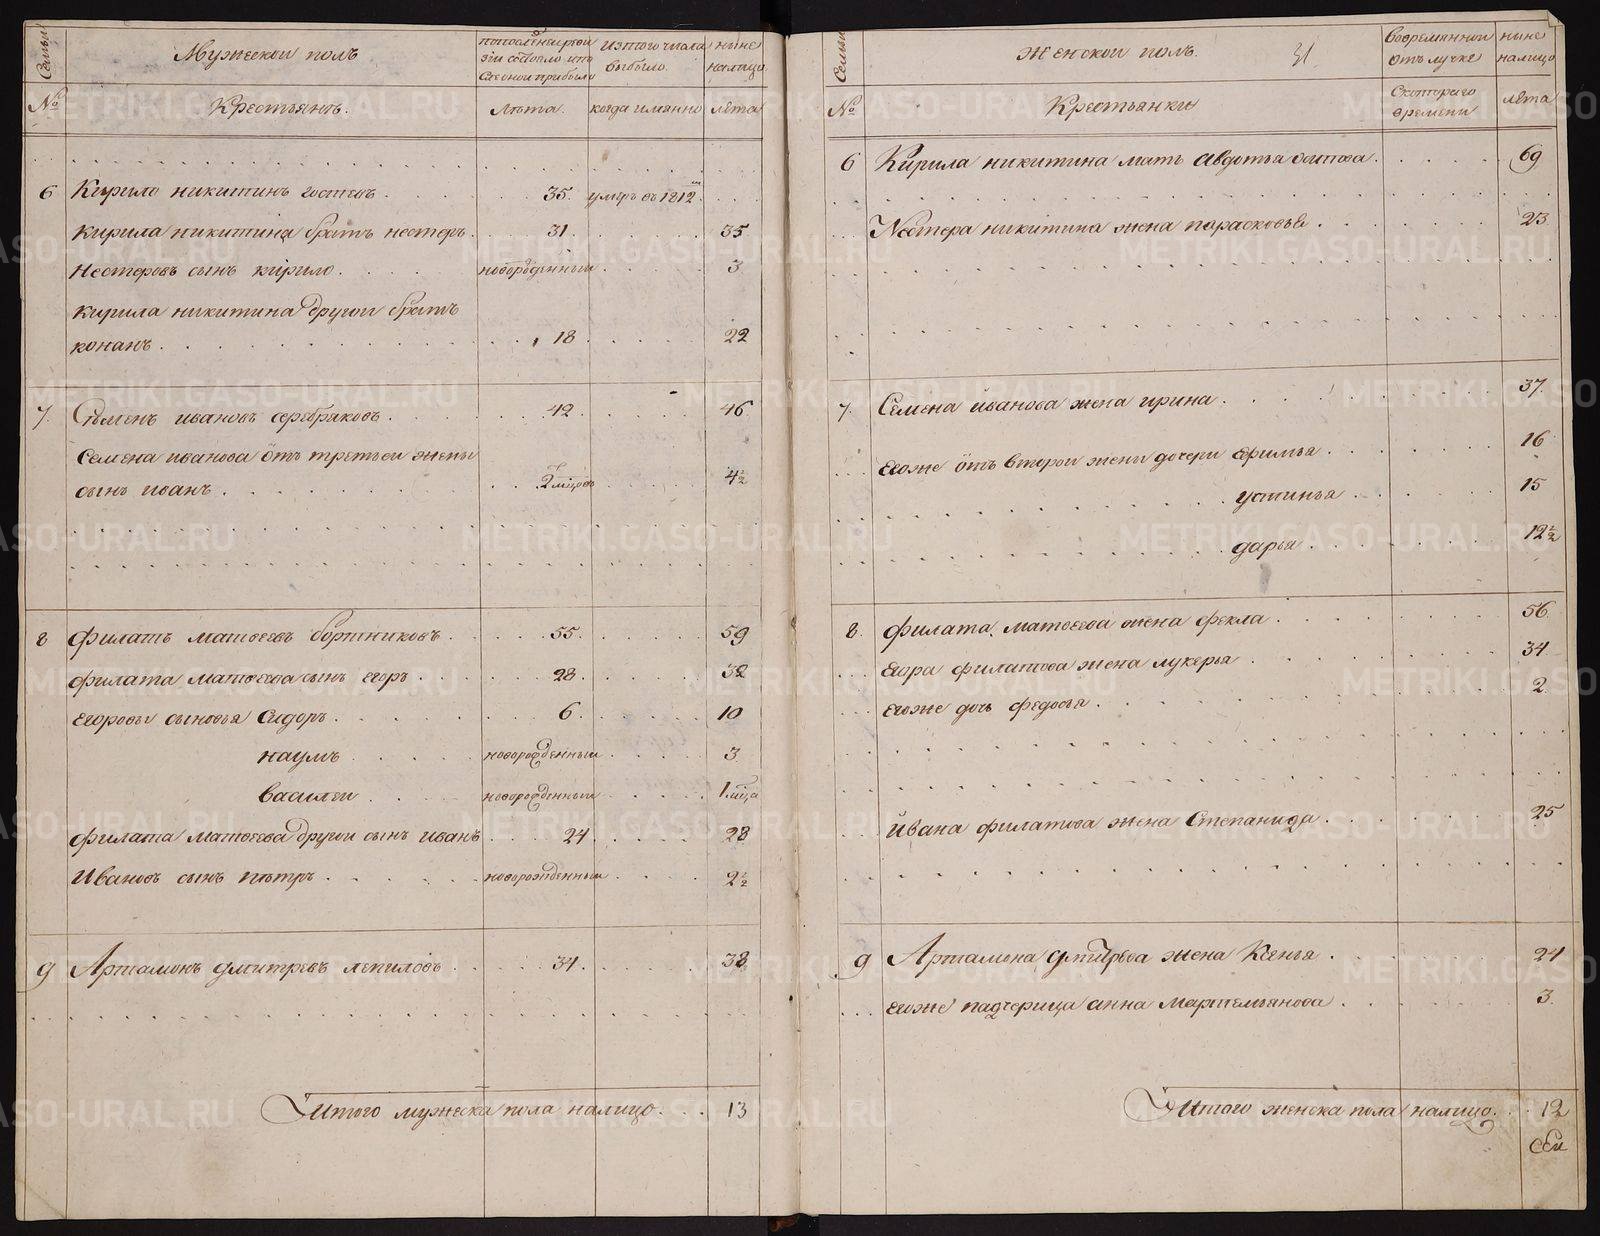 Семьи
Мужеской полъ
по последней реви
зии состояло и по
сле оной прибыло
изтого числа
выбыло.
ныне
налицо.
№
Крестьянъ.
Лѣта.
когда имянно
лѣта
6 Кирило никитинъ 35. умеръ въ 1812м
Кирила никитина братъ нестеръ. 31. 35
Нестеровъ сынъ кирило. новорожденный 3
Кирила никитина другои братъ
конанъ. 18. 22
7. Семенъ ивановъ серебраковъ. 42. 46.
Семена иванова отъ третьеи жены
сынъ иванъ. 2 мцовъ 4½
8 Филатъ матвеевъ бортниковъ. 55. 59
Филата матвеева сынъ егоръ. 28. 32
Егоровы сыновья Сидоръ. 6. 10
наумъ новорожденный 3
василеи новорожденный 1 мца
Филата матвеева другои сынъ иванъ 24. 28
Ивановъ сынъ петръ. новорожденный 2½
9 Артамонъ дмитревъ лепиловъ. 34. 38
Итого мужеска пола налицо. 13
Семьи
Женской полъ.
31
Вовременной
отълучке
ныне
налицо
№
Крестьянки
Скотораго
времени
лѣта
6 Кирила никитина мать авдотья осипова. 69
Нестера никитина жена парасковья. 23
7. Семена иванова жена ирина. 37.
Егоже отъ второи жены дочери ефимья. 16
устинья. 15
дарья. 12½
8. Филата матвеева жена фекла. 56
Егора филатова жена лукерья. 34
Егоже дочь федосья. 2
Ивана филатова жена Степанида. 25
9 Артамона дмитрева жена Ксенья. 24
Егоже падчерица анна Мартемьянова. 3.
Итого женска пола налицо. 12